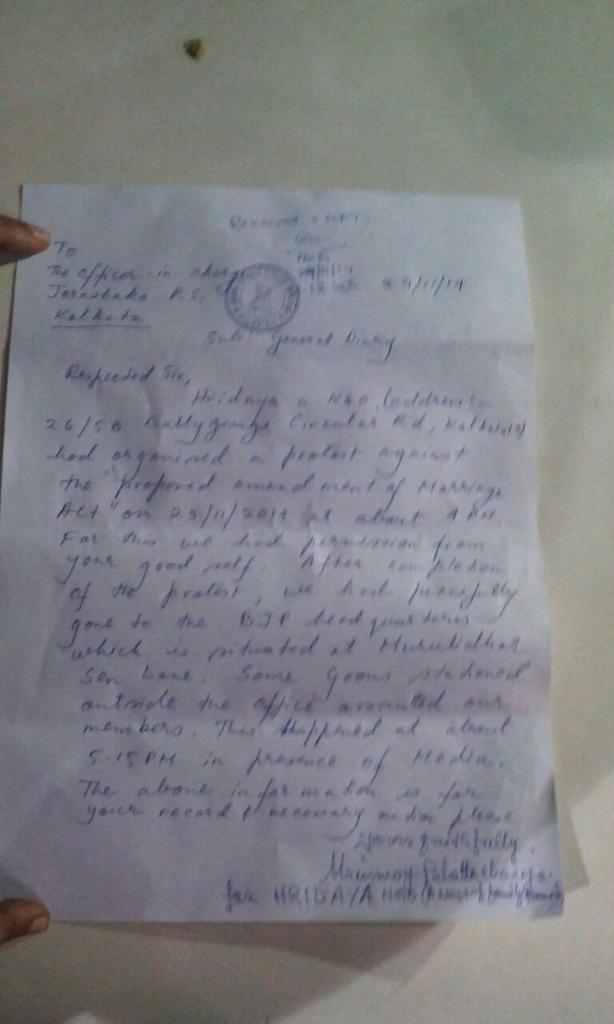 Received a copy
To
The officer-in charge
Jorashako P.S.
29/11/14
Kolkata
Sub: General Diary
Respected Sir,
Hridaya a NGO, (address:-
26/5B Ballygunge Circular Rd, Kolkata 19)
had organised a protest against
the "proposed amendment of Marriage
Act" on 29/11/2014 at about 4 PM.
For this we had permission from
your good self. After completion
of the protest, we had peacefully
gone to the BJP headquarters
which is situated at Muralidhar
Sen Lane. Some Goons stationed
outside the office assaulted our
members. This happened at about
5.15 PM in presence of Media.
The above information is for
your record & necessary action please
Yours faithfully,
Bhattacharya
for HRIDAYA NGO